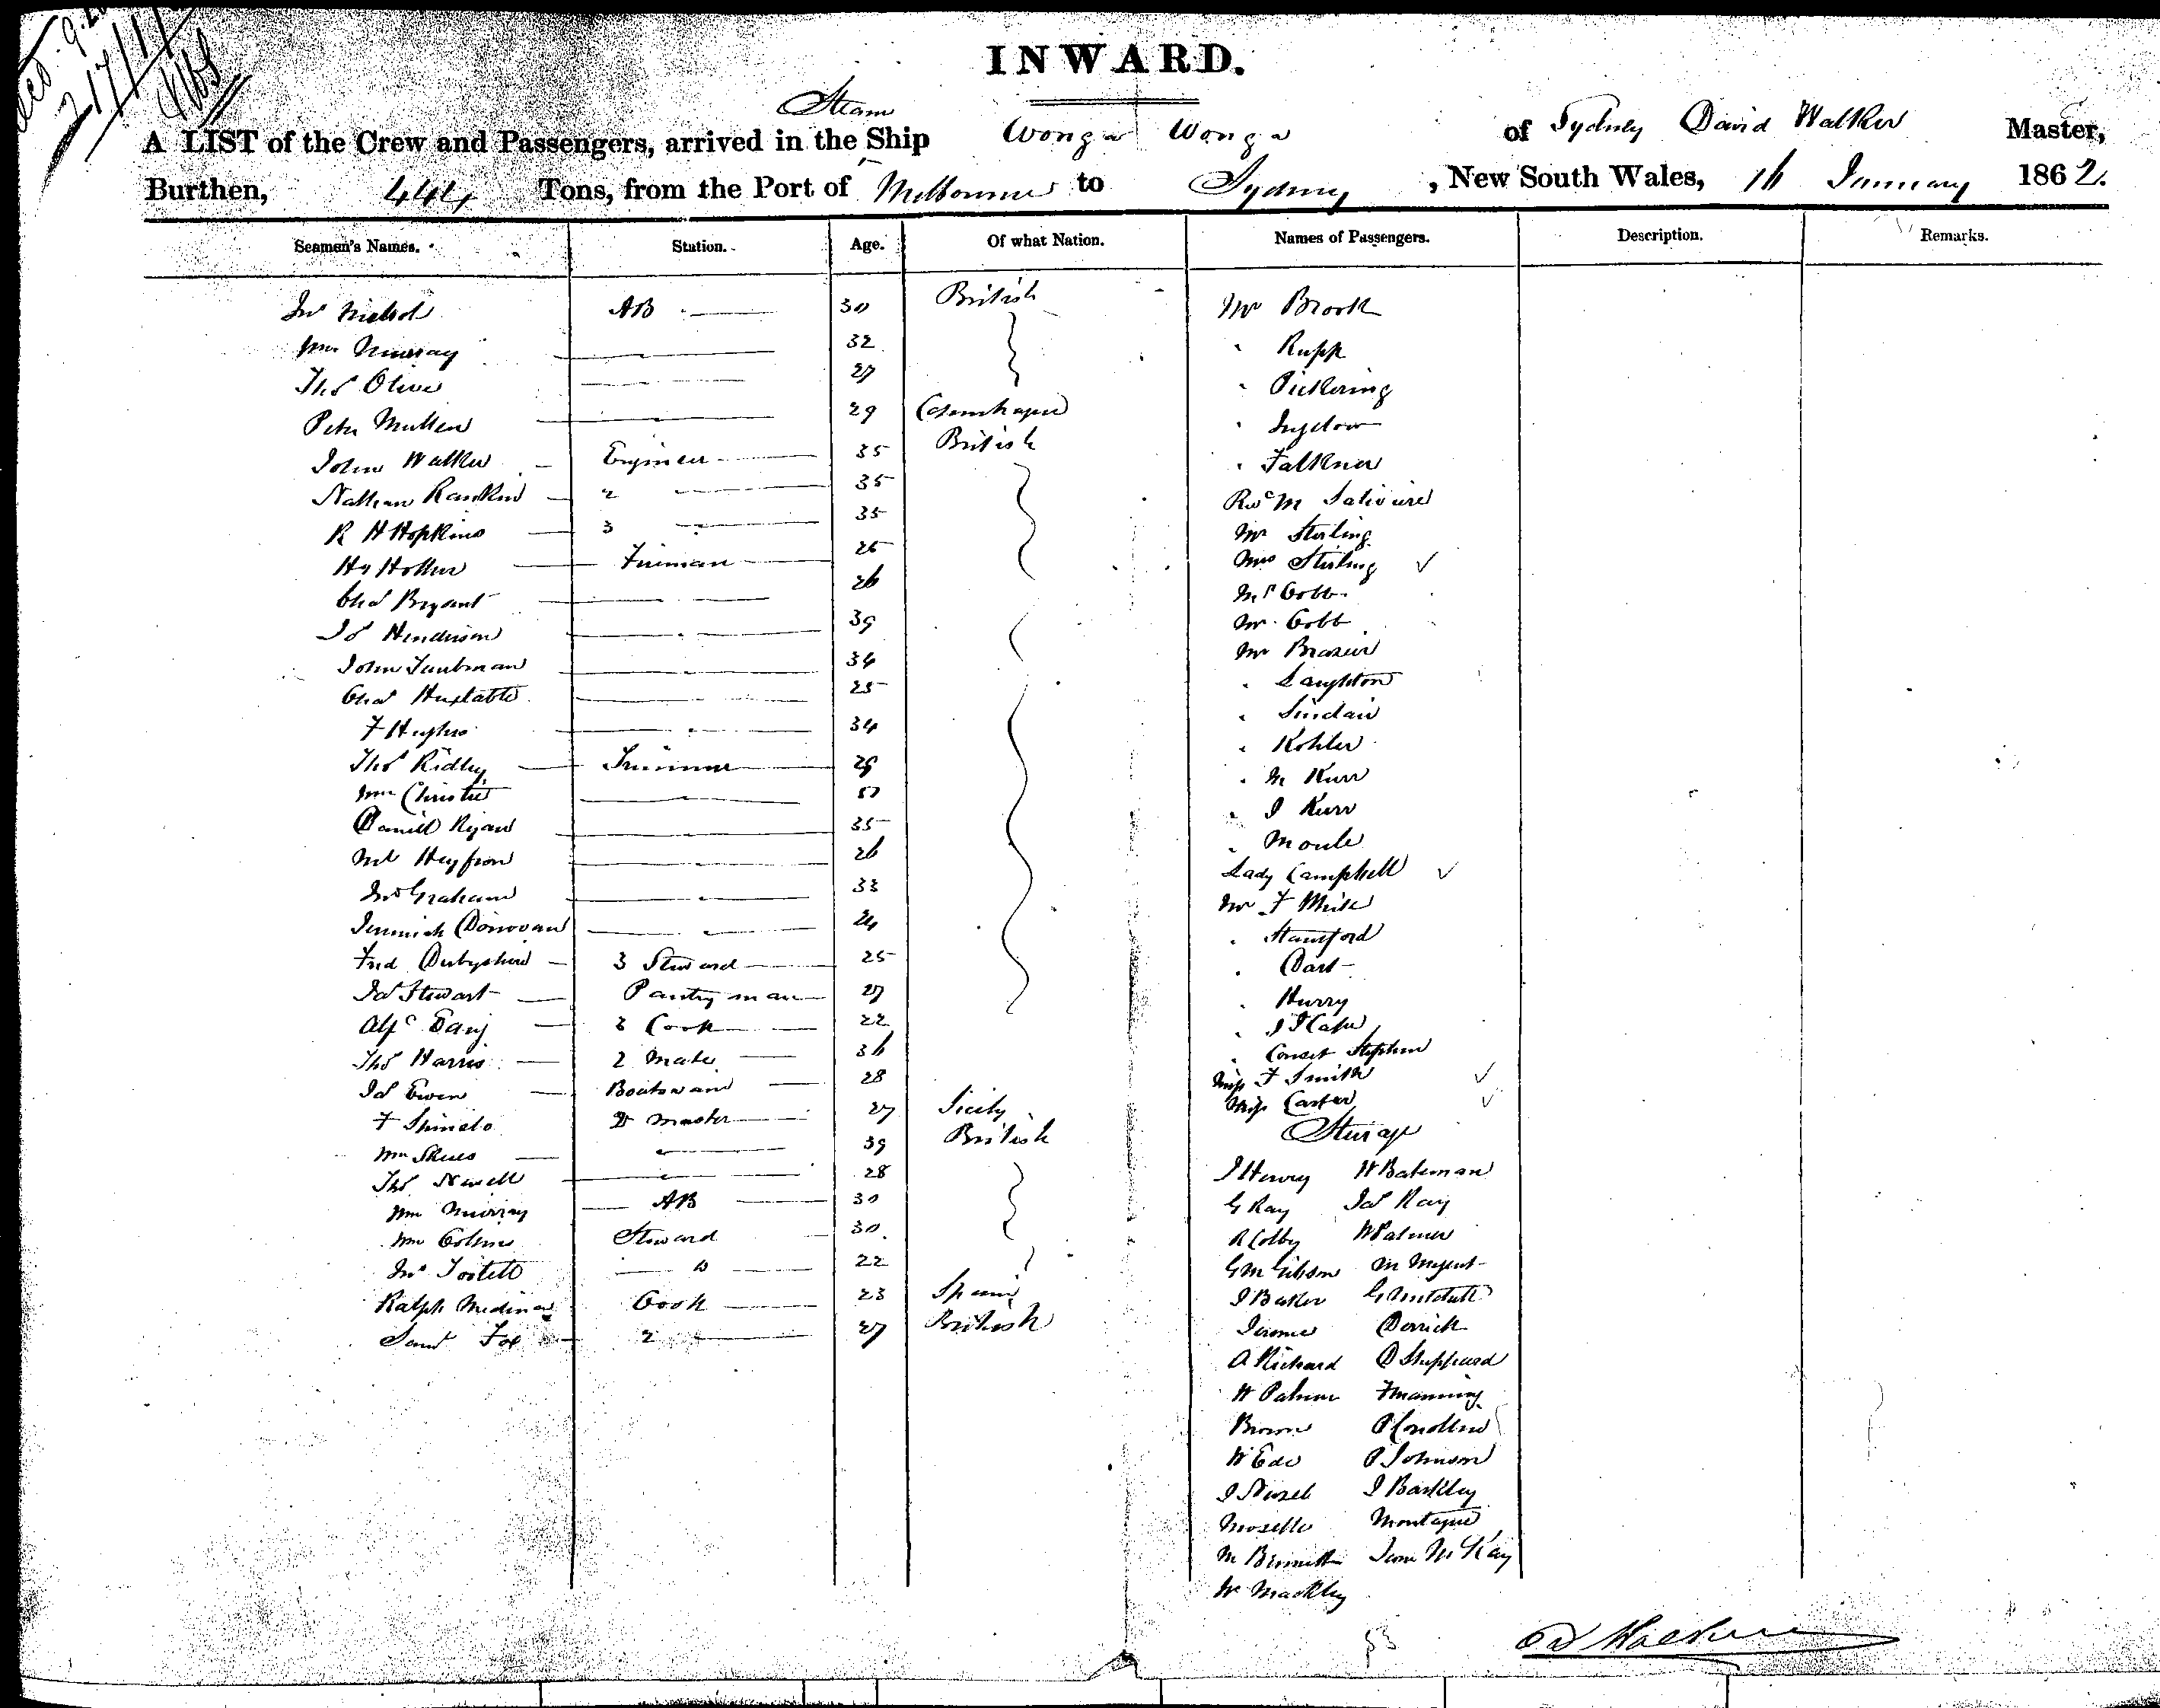 INWARD.
Steam
A LIST of the Crew and Passengers, arrived in the Ship Wonga Wonga of Sydney David Walker Master,
Burthen, 444 Tons, from the Port of Melbourne to Sydney, New South Wales, 16 January 1862.
Seamen's Names. Station. Age. Of what Nation. Names of Passengers. Description. Remarks.
Jno Nichol AB 30 British Mr Brook
Wm Murray 32 " Rupp
Thos Oliver 27 " Pickering
Peter Mullen 29
John Walker Engineer 35 British " Falkner
Nathan Rankin 2 35
R H Hopkins 3 35 Mr Stirling
Hy Fireman 25 Mrs Stirling ✓
Chas Bryant 26 Mrs Cobb
Js Henderson 39 Mr Cobb
John Taubman 34 Mr Brazier
Chas Huxtable 25 " Laughton
F Hughes 34 " Sinclair
Thos Ridley Trimmer 29 " Kohler
Wm Christie " M Kurr
Daniel Ryan 35 " J Kurr
Ml Heffron 26 " Moule
Jno Graham 33 Lady Campbell ✓
Jeremiah Donovan 24 Mr F
Fred Derbyshire 3 Steward 25 " Stanford
Jas Stewart Pantry man 27 " Dart
3 Cook 22 " Hurry
Thos Harris 2 Mate 36
Js Ewen Boatswain 28 Stephen
F Master 27 Sicily Miss F Smith ✓
Wm 39 British Miss Carter ✓
Thos Newell 28 Steerage
Wm Murray AB 30 J Henry W Bateman
Wm Steward 30 G Ray Jas Ray
Jno 22 R Colby W Palmer
Ralph Medina Cook 23 Spain G M Gibson
Saml Fox 2 27 British J Baker
Jerome Derrick
A Richard D Sheppeard
W Palmer F Manning
Brown P
W Ede P Johnson
J J Barkley
Moselle Montague
M Bennett Jane McKay
W Mackley
53
D Walker